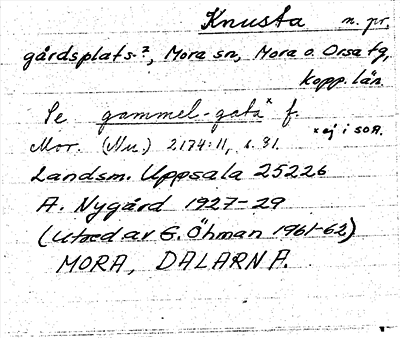 Knusta n. pr.
gårdsplats?, Mora sn, Mora o. Orsa tg,
Kopp. län.
Se gammel-gata× f.
×ej i SOA.
Mor. (Nu.) 2174:11, s. 31.
Landsm. Uppsala 25226
A. Nygård 1927-29
(Utred av G. Öhman 1961-62)
MORA, DALARNA.